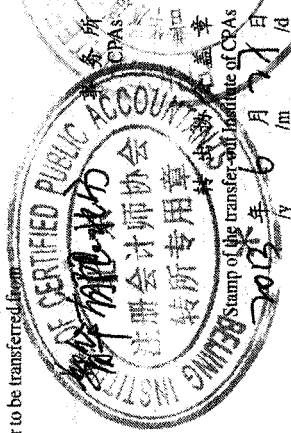 r to be transferred from
事务所
CPAs
BEIJING INSTITUTE OF CERTIFIED PUBLIC ACCOUNTANTS
注册会计师协会
转所专用章
转出协会盖章
Stamp of the transfer-out Institute of CPAs
2013年6月27日
/y /m /d